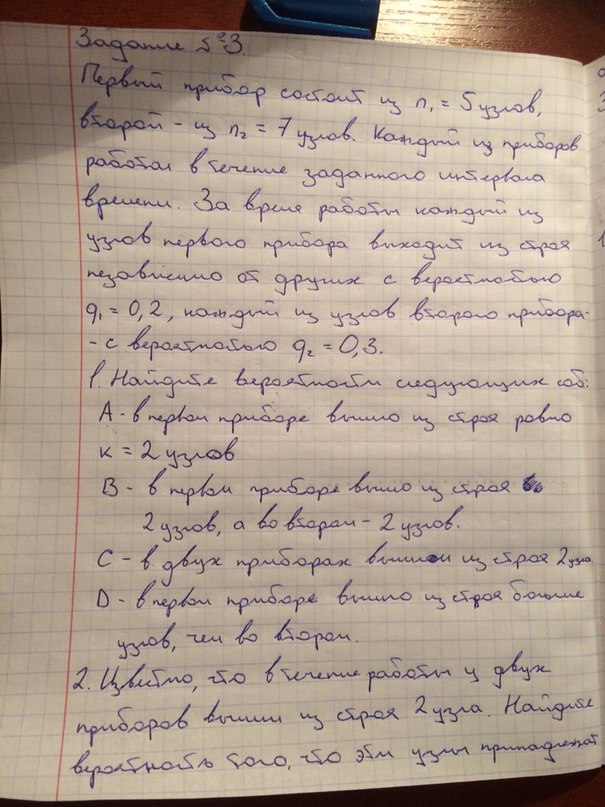 Задание №3.
Первый прибор состоит из n₁ = 5 узлов,
второй - из n₂ = 7 узлов. Каждый из приборов
работал в течение заданного интервала
времени. За время работы каждый из
узлов первого прибора выходит из строя
независимо от других с вероятностью
q₁ = 0,2, каждый из узлов второго прибора-
- с вероятностью q₂ = 0,3.
1. Найдите вероятности следующих соб:
A - в первом приборе вышло из строя ровно
к = 2 узлов
B - в первом приборе вышло из строя
2 узлов, а во втором - 2 узлов.
C - в двух приборах вышли из строя 2 узла
D - в первом приборе вышло из строя больше
узлов, чем во втором.
2. Известно, что в течение работы у двух
приборов вышли из строя 2 узла. Найдите
вероятность того, что эти узлы принадлежат